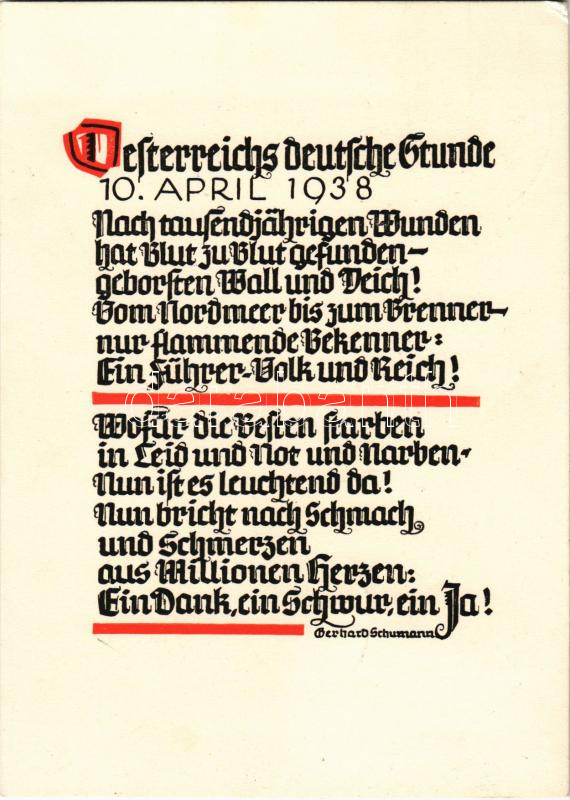 Oesterreichs deutsche Stunde
10. APRIL 1938
Nach tausendjährigen Wunden
hat Blut zu Blut gefunden–
geborsten Wall und Deich!
Vom Nordmeer bis zum Brenner–
nur flammende Bekenner:
Ein Führer-Volk und Reich!
darabanth
Wofür die Besten starben
in Leid und Not und Narben-
Nun ist es leuchtend da!
Nun bricht nach Schmach
und Schmerzen
aus Millionen Herzen:
Ein Dank, ein Schwur, ein Ja!
Gerhard Schumann